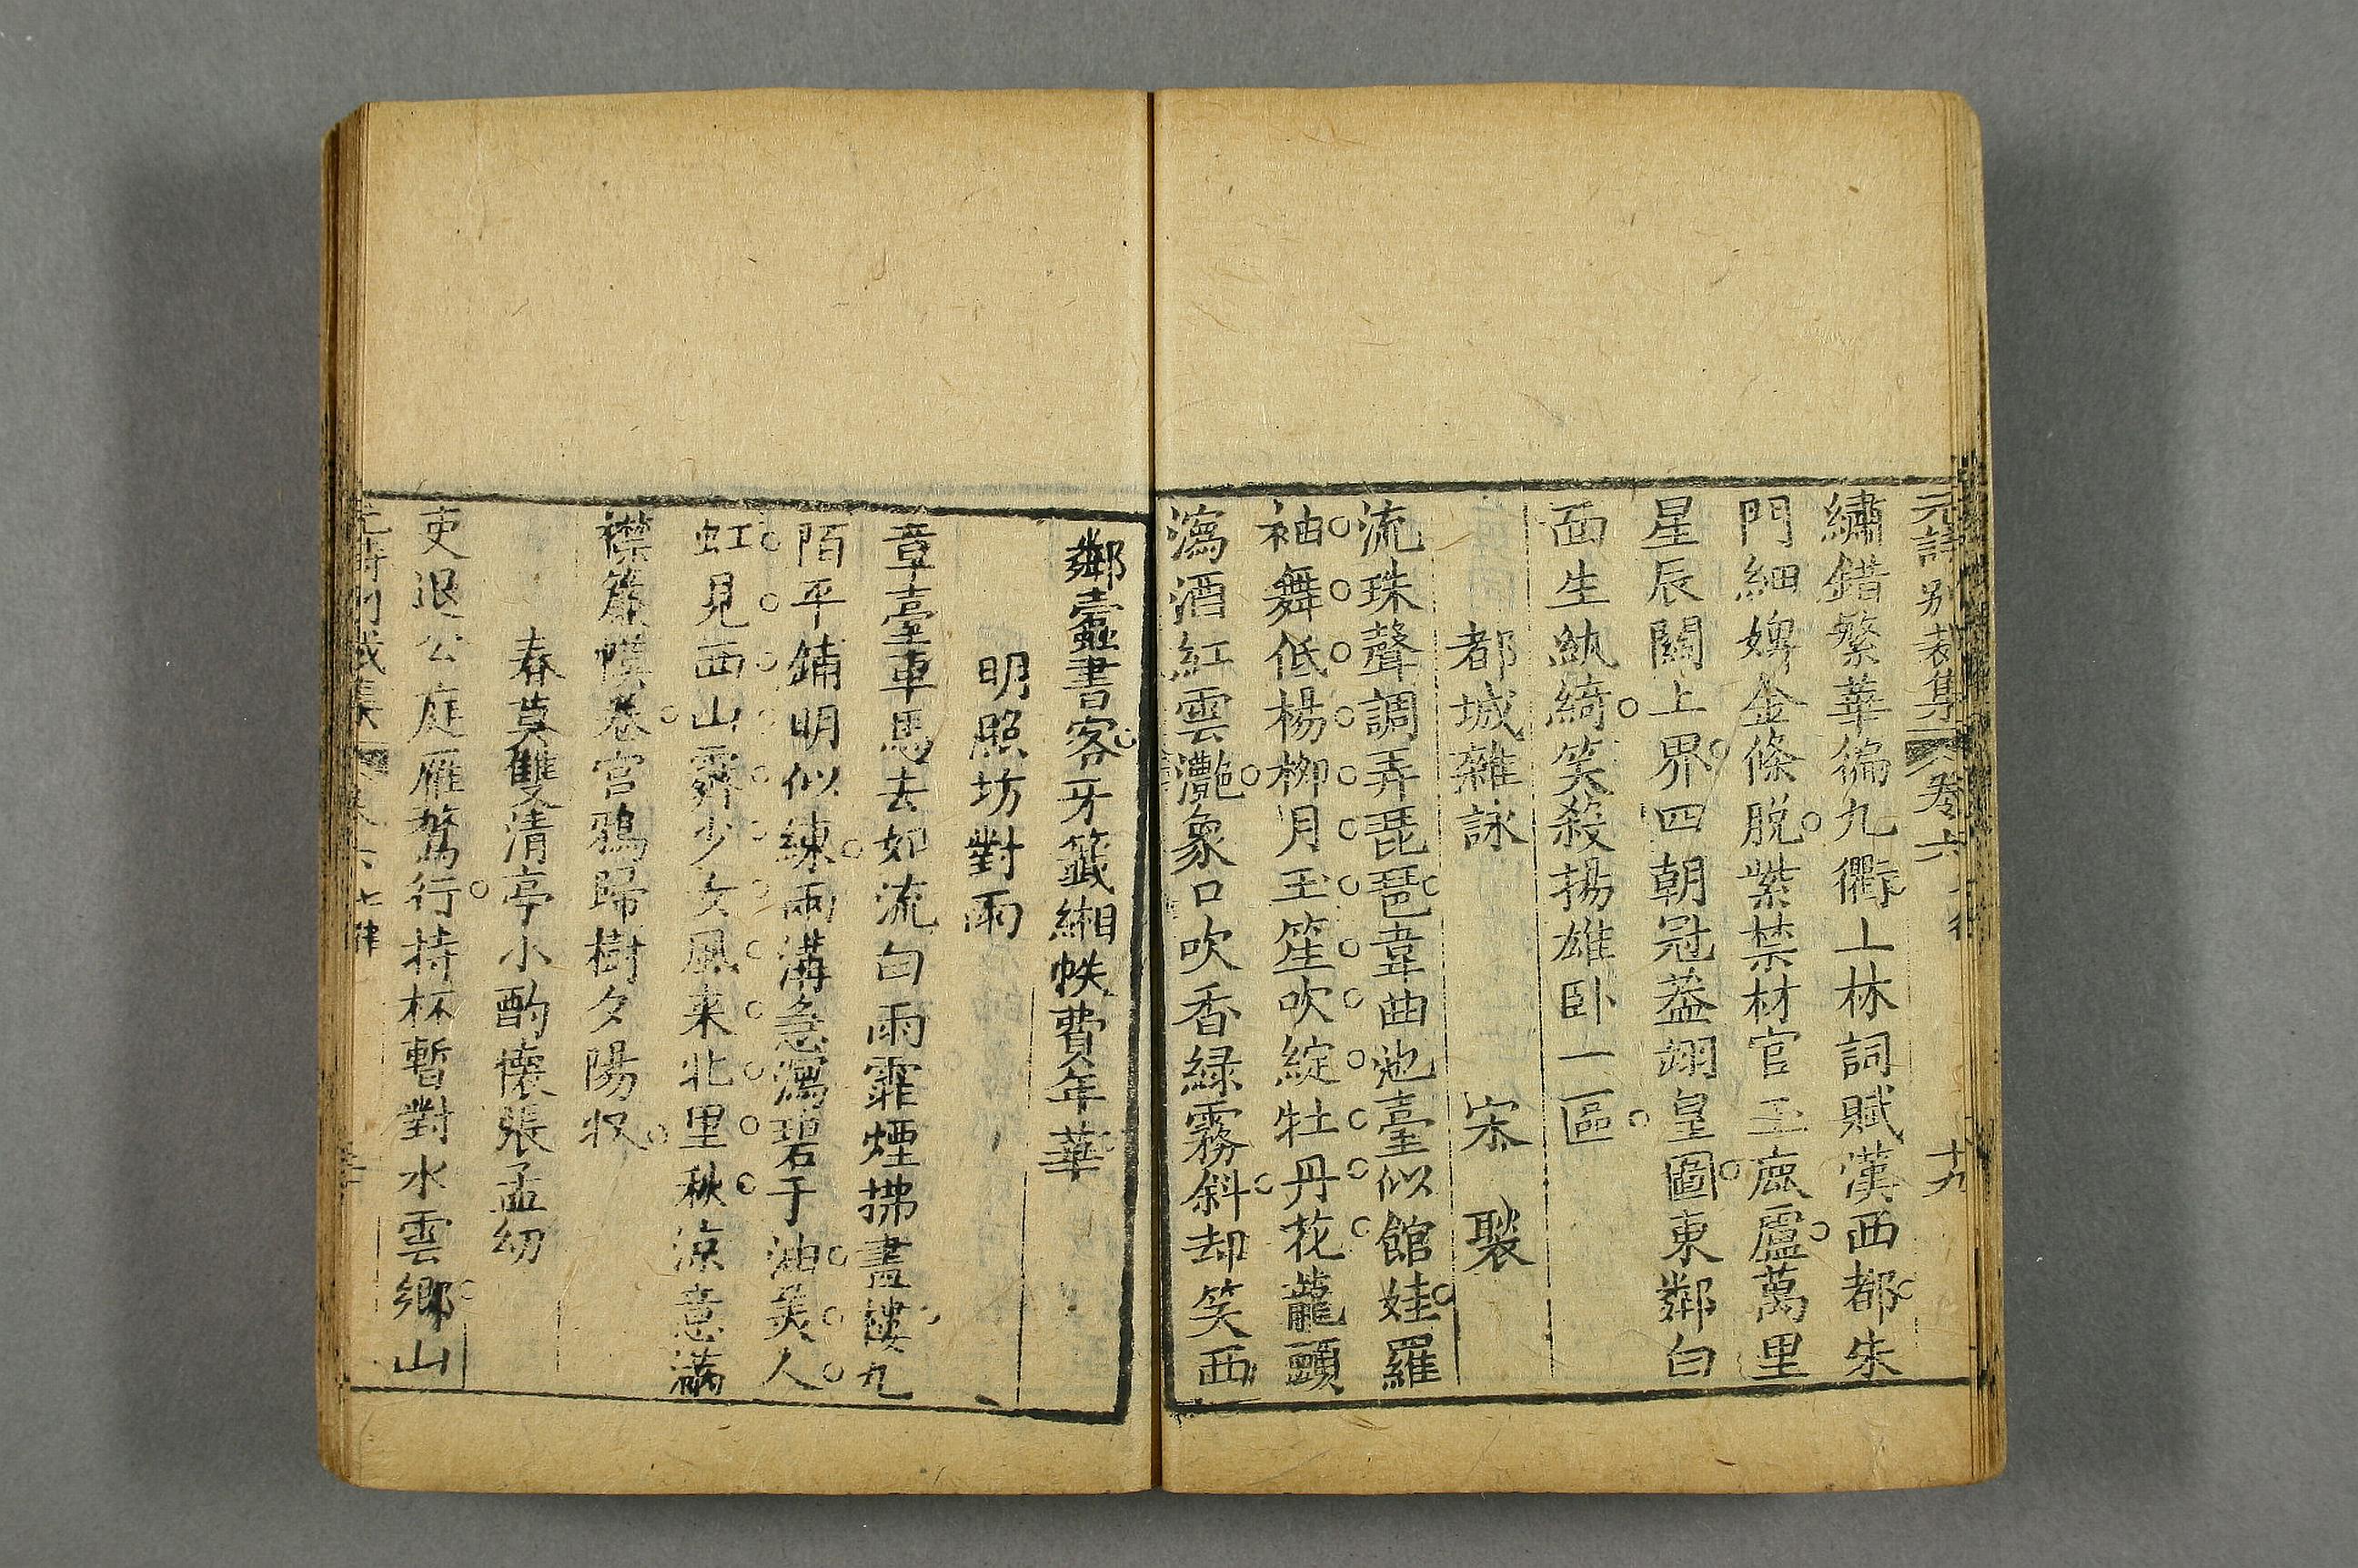 元詩別裁集 卷六 七律 十九
繡錯繁華徧九衢上林詞賦漢西都朱
門細婢金條脫紫禁材官玉鹿盧萬里
星辰關上界四朝冠葢翊皇圖東鄰白
面生紈綺笑殺揚雄卧一區
都城雜詠 宋 褧
流珠聲調弄琵琶韋曲池臺似館娃羅
袖舞低楊柳月玉笙吹綻牡丹花蘢頭
瀉酒紅雲灧象口吹香緑霧斜却笑西
鄰蠧書客牙籤緗帙費年華
明照坊對雨
章臺車馬去如流白雨霏煙拂畫樓九
陌平鋪明似練兩溝急瀉碧于油美人
虹見西山霽少女風来北里秋涼意滿
襟簾幙卷宫鴉歸樹夕陽収
春莫雙清亭小酌懐張孟㓜
吏退公庭雁鶩行持杯暫對水雲鄉山
元詩別裁集 卷六 七律